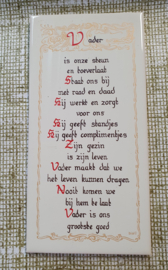 Vader
is onze steun
en toeverlaat
Staat ons bij
met raad en daad
Hij werkt en zorgt
voor ons
Hij geeft standjes
Hij geeft complimentjes
Zijn gezin
is zijn leven
Vader maakt dat we
het leven kunnen dragen
Nooit komen we
bij hem te laat
Vader is ons
grootste goed